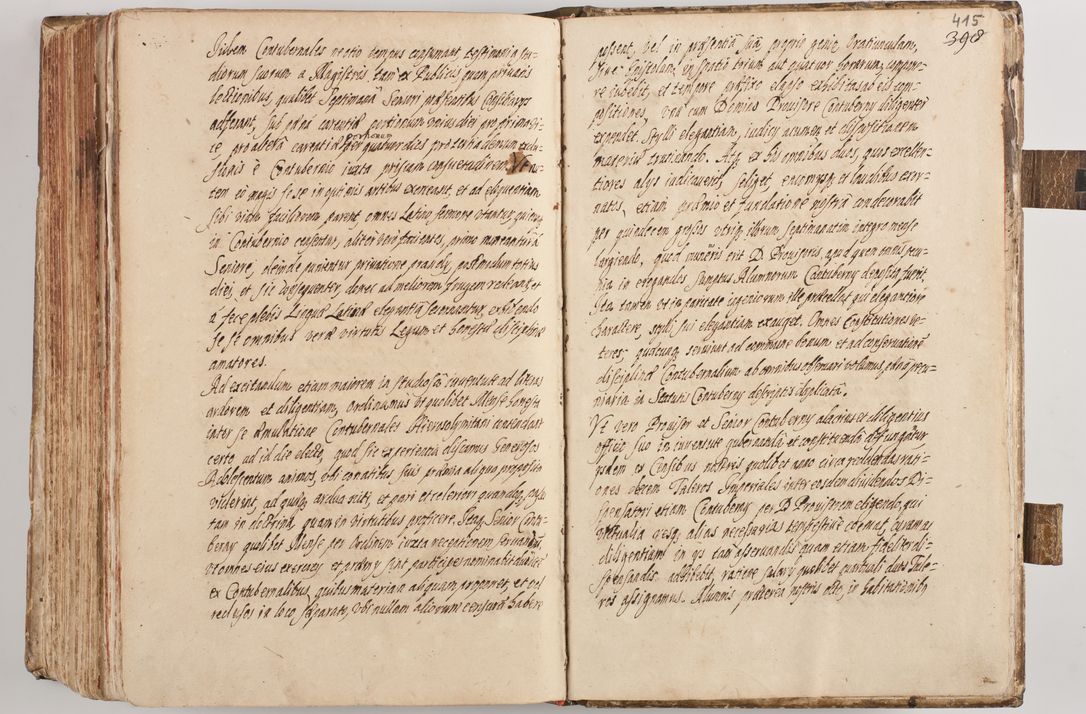 Iidem Contubernales recto tempus consumant, testimonia stu-
diorum suorum a Magistris tam ex Publicis, quam privatis
lectionibus, qualibet Septimana Seniori praesentatis Conscribenda
adferant, sub paena carentiae portionum unius diei pro prima vi-
ce, pro altera carentiae portionum per quatuor dies pro tertia demum exclu-
sionis e Contubernio iuxta priscam consuetudinem. Ut au-
tem eo magis sese in optimis artibus exerceant, et ad eloquentiam
sibi viam faciliorem parent, omnes Latino sermone utantur, quicunq
in Contubernio censentur, aliter vero facientes, primo moneantur a
Seniore, deinde puniantur privatione prandy, postmodum totius
diei, et sic consequenter, donec ad meliorem frugem redeant, et
a fece plebis Lingua Latina elegantia secernantur, exhibendo
se se omnibus verae virtutis Legum et honestae disciplinae
amatores.
Ad excitandum etiam maiorem in studiosa iuventute ad literas
ardorem et diligentiam, ordinamus ut quolibet Mense honesta
inter se aemulatione Contubernales Hierosolymitani contendant
certo ad id die electo, quod sic experientia discamus Generosos
Adolescentum animos, ubi conatibus suis praemia aliquo proposito
viderint, ad quaeq ardua niti, et pari et celeriori quandoq cursu
tam in doctrina, quam in virtutibus proficere. Itaq Senior Contu-
berny quolibet Mense per Ordinem iuxta receptionem servandum
ut omnes eius exercitij et praemy sint participes nominabit duos
ex Contubernalibus, quibus materiam aliquam proponet, et vel
reclusos in loco separato, ubi nullam aliorum censuram habere
415
398
possent, vel in praesentia sua, proprio genio, Oratiunculam,
sive Epistolam, in spatio trium aut quatuor horarum, compone-
re iubebit, et tempore praefixo elapso exhibitas ab eis com-
positiones, una cum Domino Provisore Contuberny diligenter
expendet. Styli elegantiam, iudicij acumen et dispositionem
materiae trutinando. Atq ex his omnibus duos, quos excellen-
tiores alijs iudicaverit, seliget, encomijsq et laudibus exor-
natos, etiam praemio ex fundatione nostra condecorabit
per quindecim grossos utriq illorum septimanatim integro mense
largiendo, quod muneris erit D. Provisoris, apud quem omnis pecu-
nia in erogandos sumptus Alumnorum Contuberny deposita fuerit.
Ita tamen ut in paritate ingeniorum ille praecellat qui elegantiori
charactere, styli sui elegantiam exauget. Omnes Constitutiones ve-
teres, quaecunq serviunt ad commune bonum et ad conservationem
disciplinae Contubernalium ab omnibus observari volumus, poena pecu-
niaria in Statutis Contuberny descriptis duplicata.
Ut vero Provisor et Senior Contuberny alacrius et diligentius
officio suo in iuventute gubernanda et constituenda defungantur
ijsdem ex Censibus nostris quolibet anno circa reddendas rati-
ones decem Taleros Imperiales inter eosdem dividendos Di-
spensatori etiam Contuberny per D. Provisorem eligendo, qui
victualia resq alias necessarias tempestive coemat, curamq
diligentiam in ijs tam asservandis quam etiam fideliter di-
spensandis adhibebit, ratione salarij quolibet quartuali duos tale-
ros assignamus. Alumnis praeterea nostris octo, in habitationibus